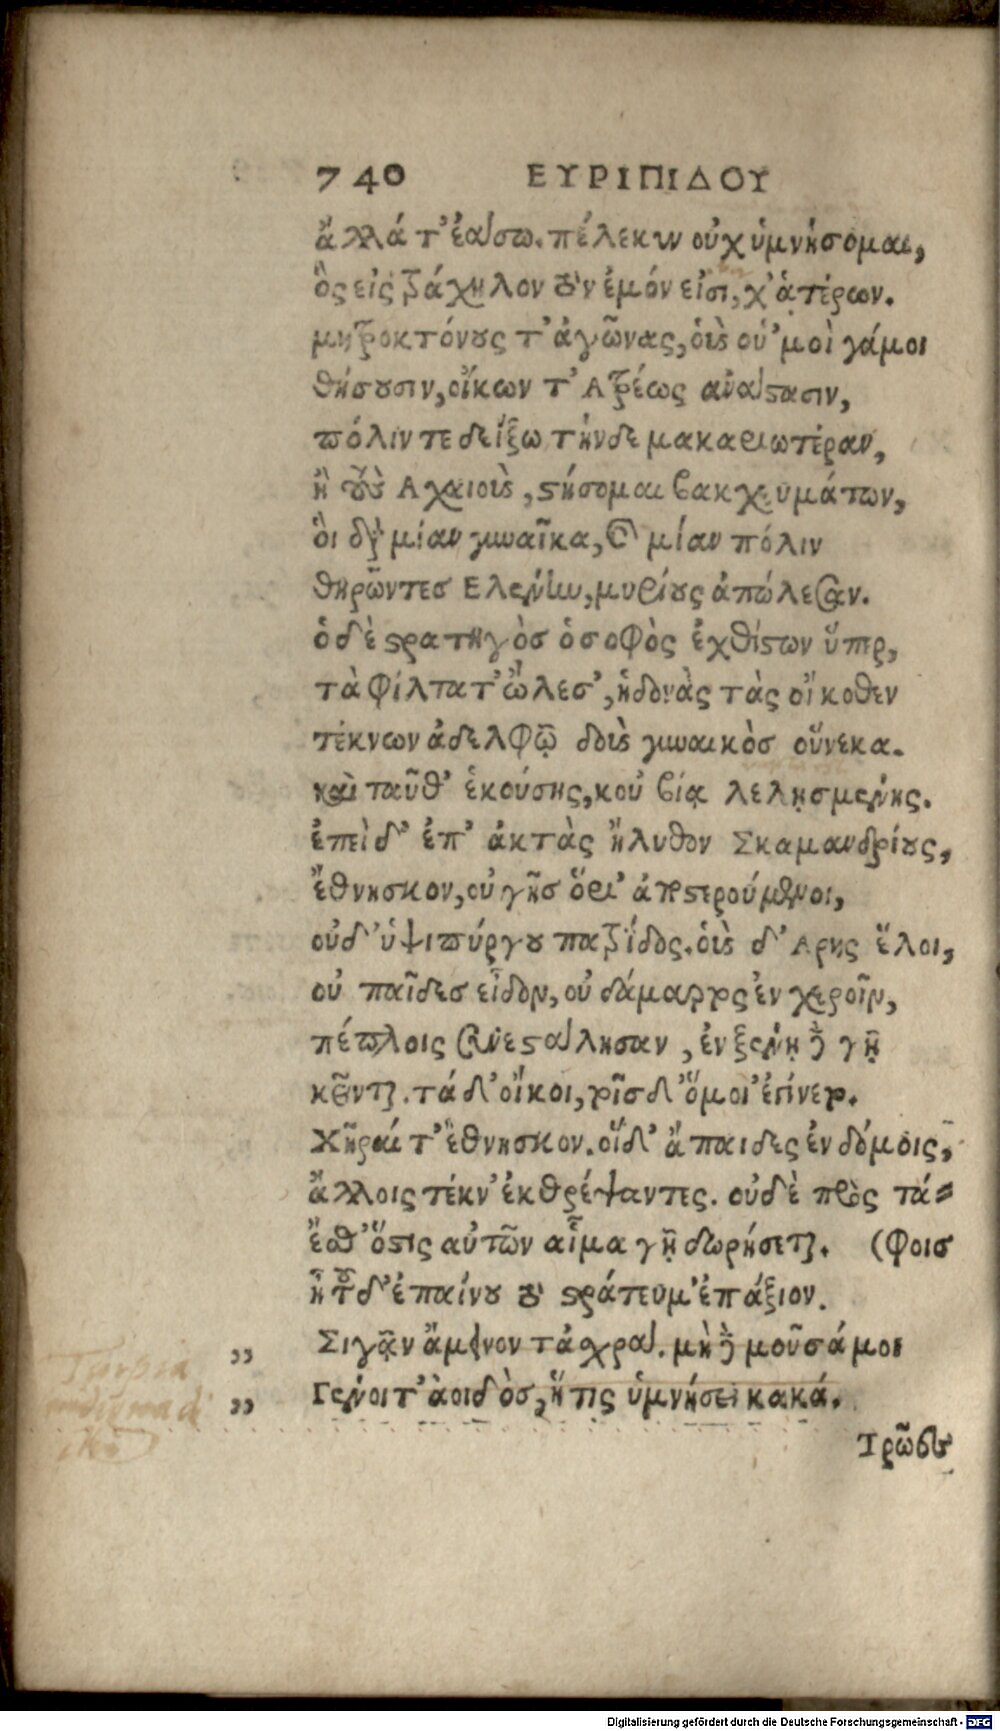 740 ΕΥΡΙΠΙΔΟΥ
ἄλλά τ' ἐάσω. πέλεκυν οὐχ ὑμνήσομαι,
ὃς εἰς τράχηλον τοὐν ἐμόν εἶσι, χ' ἁτέρων.
μητροκτόνους τ' ἀγῶνας, οὓς οὑ' μοὶ γάμοι
θήσουσιν, οἴκων τ' Ατρέως ἀνάστασιν,
πόλιν τε δείξω τήνδε μακαριωτέραν,
ἢ τοὺς Αχαιοὺς, στήσομαι βακχευμάτων,
ὃι διὰ μίαν γυναῖκα, καὶ μίαν πόλιν
θηρῶντεσ Ελένην, μυρίους ἀπώλεσαν.
ὁ δὲ στρατηγὸσ ὁ σοφὸς ἐχθίστων ὕπερ,
τὰ φίλτατ' ὤλεσ', ἡδονὰς τὰς οἴκοθεν
τέκνων ἀδελφῷ δοὺς γυναικὸσ οὕνεκα.
καὶ ταῦθ' ἑκούσης, κοὐ βίᾳ λελῃσμένης.
ἐπεὶ δ' ἐπ' ἀκτὰς ἤλυθον Σκαμανδρίους,
ἔθνησκον, οὐ γῆσ ὅρι' ἀποστερούμενοι,
οὐδ' ὑψιπύργου πατρίδος. οὓς δ' Αρης ἕλοι,
οὐ παῖδεσ εἶδον, οὐ δάμαρτος ἐν χεροῖν,
πέπλοις συνεστάλησαν, ἐν ξένῃ δὲ γῇ
κεῖνται. τά δ' οἴκοι, τοῖσδ' ὅμοι' ἐγίνετο.
Χῆραί τ' ἔθνησκον. οἵδ' ἄπαιδες ἐν δόμοις,
ἄλλοις τέκν' ἐκθρέψαντες. οὐδὲ πρὸς τά=
ἔσθ' ὅστις αὐτῶν αἷμα γῇ δωρήσεται. (φοισ
ἦ τοῦδ' ἐπαίνου τὸ στράτευμ' ἐπάξιον.
„ Σιγᾷν ἄμεινον τἀχρά. μὴ δὲ μοῦσά μοι
„ Γένοιτ' ἀοιδὸσ, ἥτις ὑμνήσει κακά.
Τρῶες
Digitalisierung gefördert durch die Deutsche Forschungsgemeinschaft - DFG